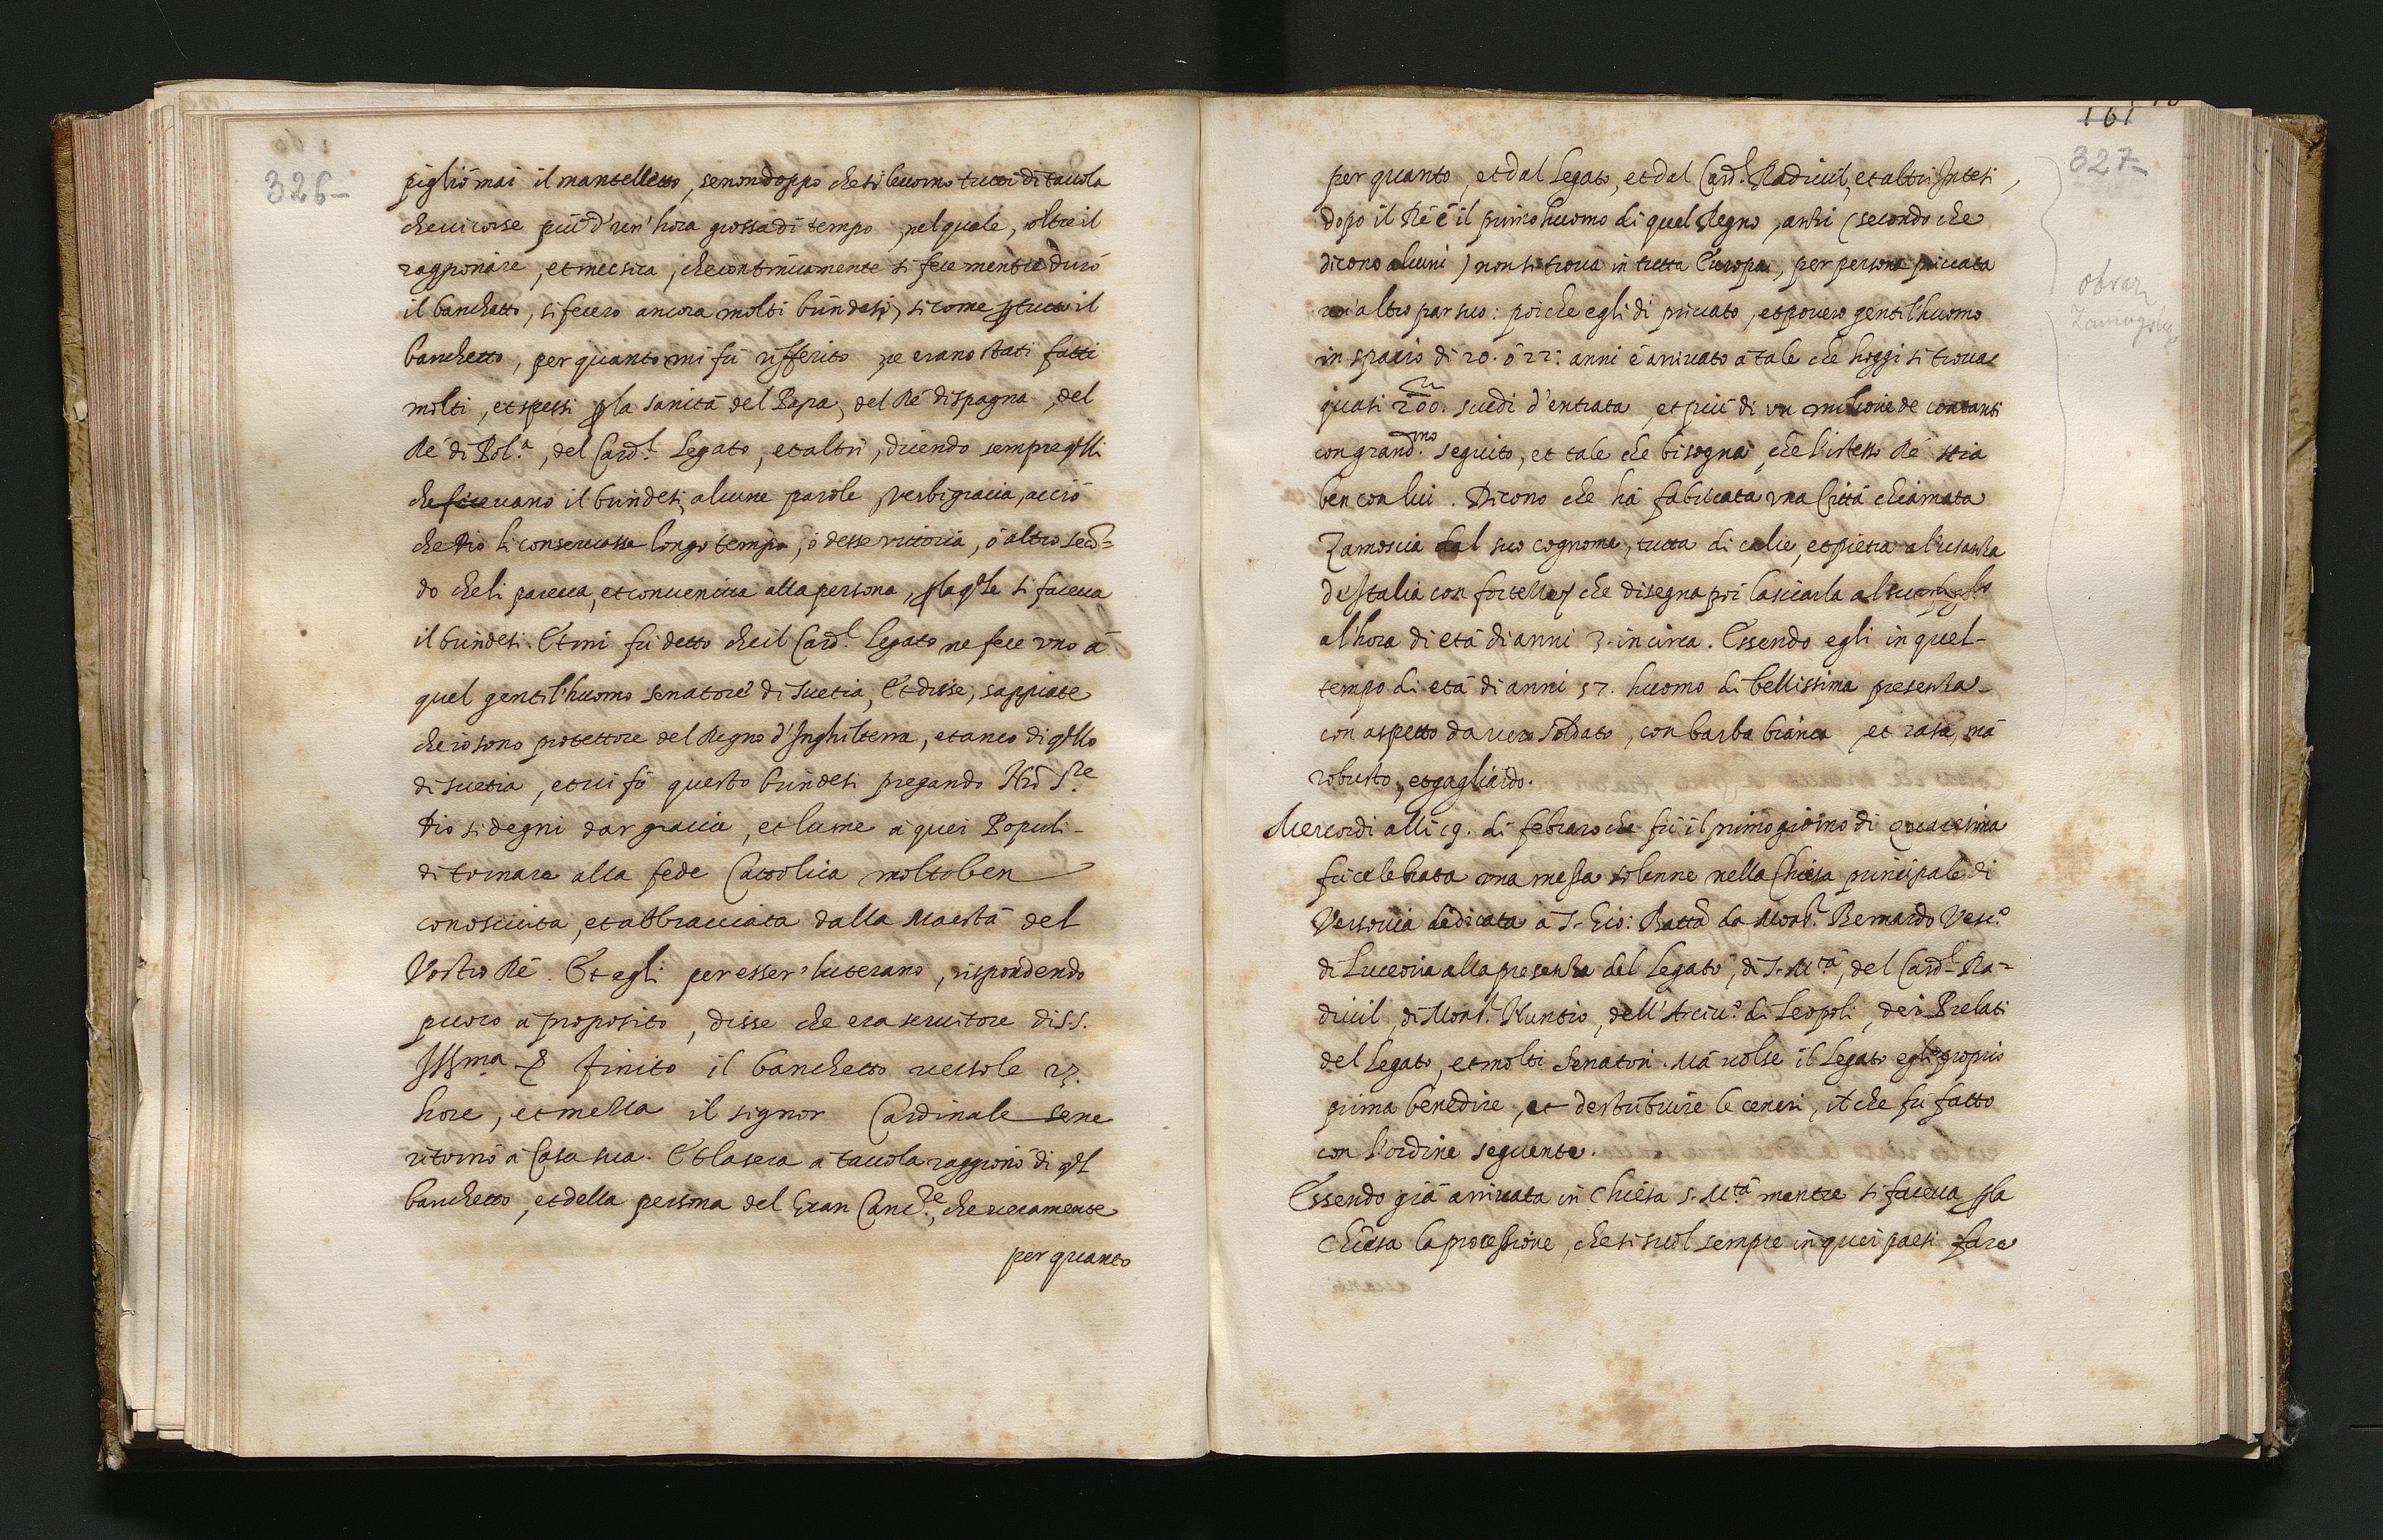 326-
pigliò mai il mantelletto, se non doppo che si levorno tutti di tavola
che vi corse più d'un' hora grossa di tempo, nel quale, oltre il
raggionare, et musica, che continuamente si fece mentre durò
il banchetto, si fecero ancora molti brindesi, si come p tutto il
banchetto, per quanto mi fù rifferito ne erano stati fatti
molti, et spessi p la sanità del Papa, del Rè di spagna, del
Rè di Pol.ª, del Card.l Legato, et altri, dicendo sempre qlli
che facevano il brindesi, alcune parole, verbi gracia, acciò
che Dio li conservasse longo tempo, ò desse vittoria, ò altro secō=
do che li pareva, et conveniva alla persona, p la qle si faceva
il brindesi. Et mi fù detto che il Card.l Legato ne fece vno à
quel gentil'huomo senatore di Suetia, Et disse, sappiate
che io sono protettore del Regno d'Inghilterra, et anco di qllo
di Suetia, et vi fò questo brindesi pregando Nrō S.re
Dio si degni dar gracia, et lume à quei Populi-
di tornare alla fede Cattolica molto ben
conosciuta, et abbracciata dalla Maestà del
Vostro Rè. Et egli per esser' luterano, rispondendo
puoco à proposito, disse che era servitore di S.S.
Illma & finito il banchetto verso le 23.
hore, et mezza il signor Cardinale se ne
ritornò à Casa sua. Et la sera à tavola raggionò di ql
banchetto, et della persona del Gran Canc.re, che veramente
per quanto
161
327-
per quanto, et dal Legato, et dal Card.l Radivil, et altri Intesi,
dopo il Rè è il primo huomo di quel Regno, anzi (secondo che
dicono alcuni) non si trova in tutta Europa, per persona privata
vn'altro par suo: poiche egli di privato, et povero gentil'huomo
in spacio di 20. ò 22: anni è arrivato à tale che hoggi si trova
quasi 200. scudi d'entrata, et più di vn milione de contanti
con grand.mo seguito, et tale che bisogna, che l'istesso Rè stia
ben con lui. Dicono che hà fabricata vna Città chiamata
Zamoscia dal suo cognome, tutta di calce, et pietra al'usanza
d'Italia con fortezza, che disegna poi lasciarla al suo figlo
al'hora di età di anni 3. in circa. Essendo egli in quel-
tempo di età di anni 57. huomo di bellissima presenza-
con aspetto da vero Soldato, con barba bianca, et rasa, mà
robusto, et gagliardo.
Mercordi alli 19. di febraro che fù il primo giorno di Quaresima
fù celebrata vna messa solenne nella Chiesa principale di
Varsovia dedicata à S. Gio: Battā da Mons.r Bernardo Vesc.º
di Luceoria alla presenza del Legato, di S. M.tà, del Card.l Ra=
divil, di Mons.r Nuntio, dell'Arciv.º di Leopoli, dei Prelati
del Legato, et molti Senatori. Mà volse il Legato egli proprio
prima benedire, et destribuire le ceneri, il che fù fatto
con l'ordine seguente.
Essendo già arrivata in Chiesa S. M.tà mentre si faceva p la
Chiesa la processione, che si suol sempre in quei paesi fare
avanti
obraz
Zamoysky